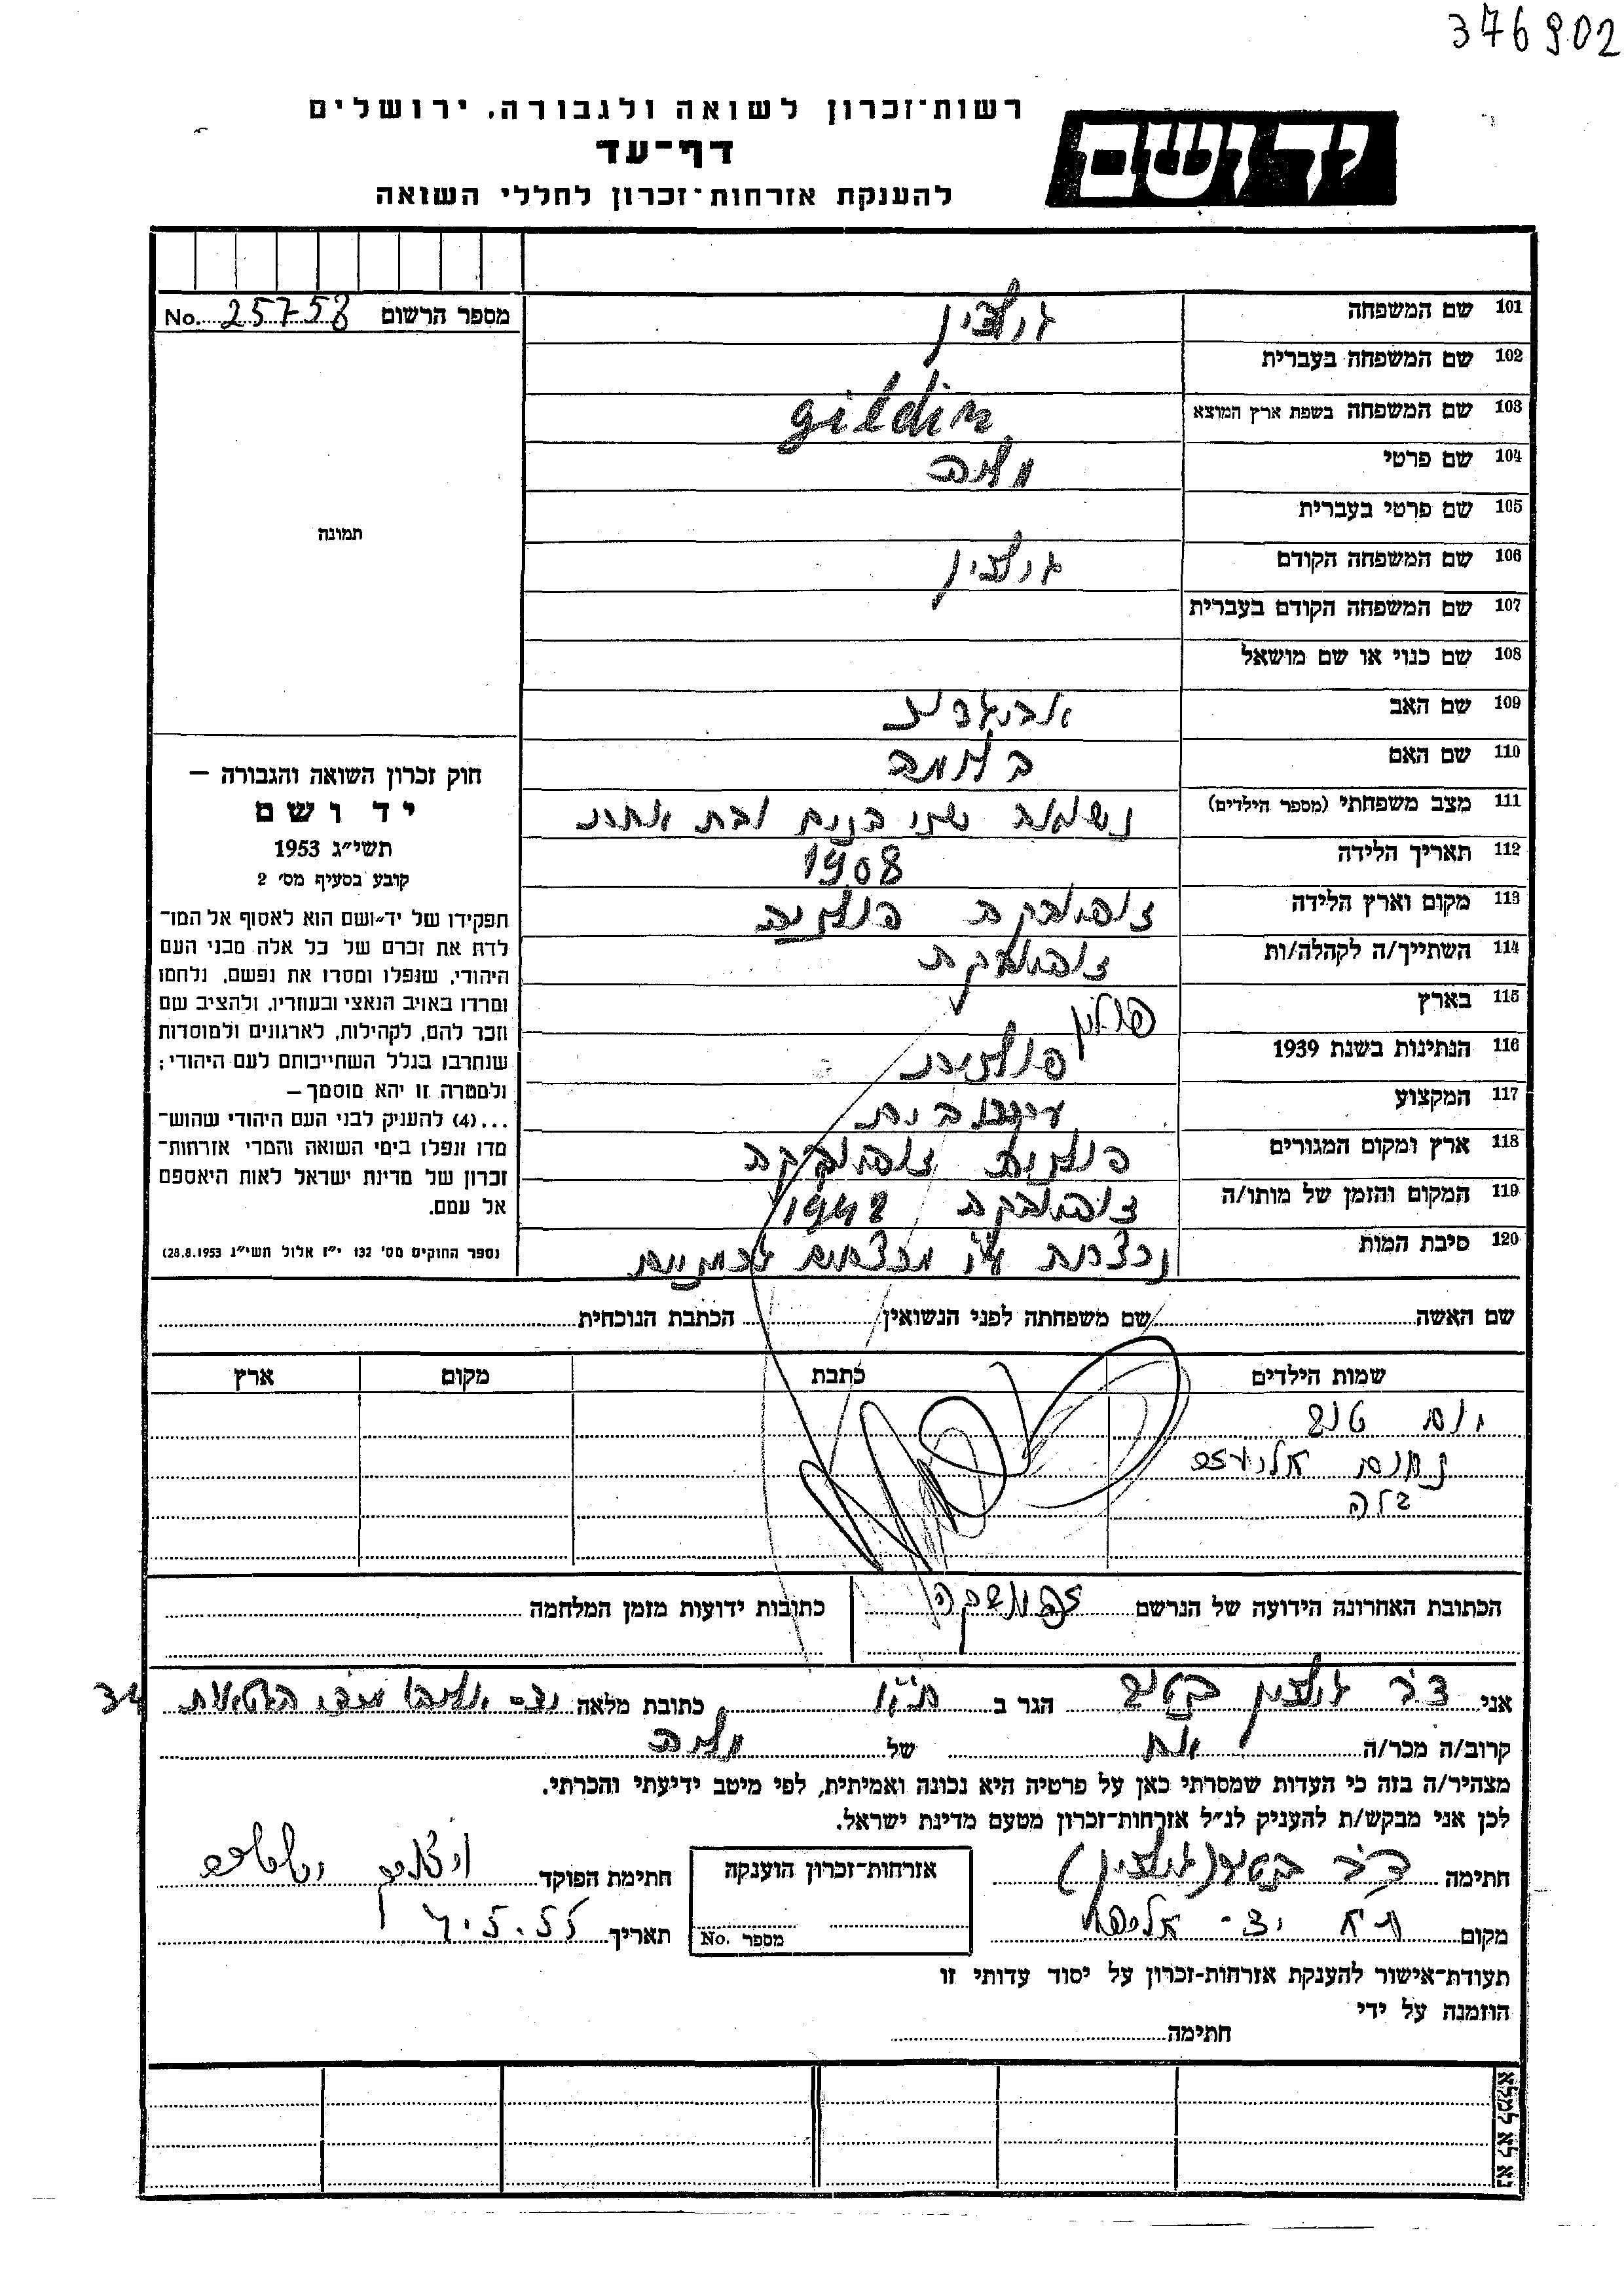 376902
רשות־זכרון לשואה ולגבורה, ירושלים
דף־עד
להענקת אזרחות־זכרון לחללי השואה
יד ושם
מספר הרשום No. 25758
תמונה
חוק זכרון השואה והגבורה —
יד ושם
תשי״ג 1953
קובע בסעיף מס׳ 2
תפקידו של יד־ושם הוא לאסוף אל המו־
לדת את זכרם של כל אלה מבני העם
היהודי, שנפלו ומסרו את נפשם, נלחמו
ומרדו באויב הנאצי ובעוזריו, ולהציב שם
וזכר להם, לקהילות, לארגונים ולמוסדות
שנחרבו בגלל השתייכותם לעם היהודי;
ולמטרה זו יהא מוסמך —
...(4) להעניק לבני העם היהודי שהוש־
מדו ונפלו בימי השואה והמרי אזרחות־
זכרון של מדינת ישראל לאות היאספם
אל עמם.
(ספר החוקים מס׳ 132 י״ז אלול תשי״ג 28.8.1953)
101 שם המשפחה גילדין
102 שם המשפחה בעברית
103 שם המשפחה בשפת ארץ המוצא gildin
104 שם פרטי
105 שם פרטי בעברית
106 שם המשפחה הקודם גילדין
107 שם המשפחה הקודם בעברית
108 שם כנוי או שם מושאל
109 שם האב
110 שם האם
111 מצב משפחתי (מספר הילדים) נשואה שני בנים ובת אחת
112 תאריך הלידה 1908
113 מקום וארץ הלידה
114 השתייך/ה לקהלה/ות
115 בארץ פולין
116 הנתינות בשנת 1939 פולנית
117 המקצוע
118 ארץ ומקום המגורים
119 המקום והזמן של מותו/ה 1942
120 סיבת המות נרצחה ע״י מרצחים גרמניים
שם האשה שם משפחתה לפני הנשואין הכתבת הנוכחית
שמות הילדים כתבת מקום ארץ
נחום
בלה
הכתובת האחרונה הידועה של הנרשם
כתובות ידועות מזמן המלחמה
אני גילדין הגר ב כתובת מלאה 34
קרוב/ה מכר/ה אח של
מצהיר/ה בזה כי העדות שמסרתי כאן על פרטיה היא נכונה ואמיתית, לפי מיטב ידיעתי והכרתי.
לכן אני מבקש/ת להעניק לנ״ל אזרחות־זכרון מטעם מדינת ישראל.
חתימה (גילדין)
אזרחות־זכרון הוענקה
מספר No.
חתימת הפוקד
מקום
תאריך 4.5.55
תעודת־אישור להענקת אזרחות־זכרון על יסוד עדותי זו
הוזמנה על ידי
חתימה
נא לא למלא